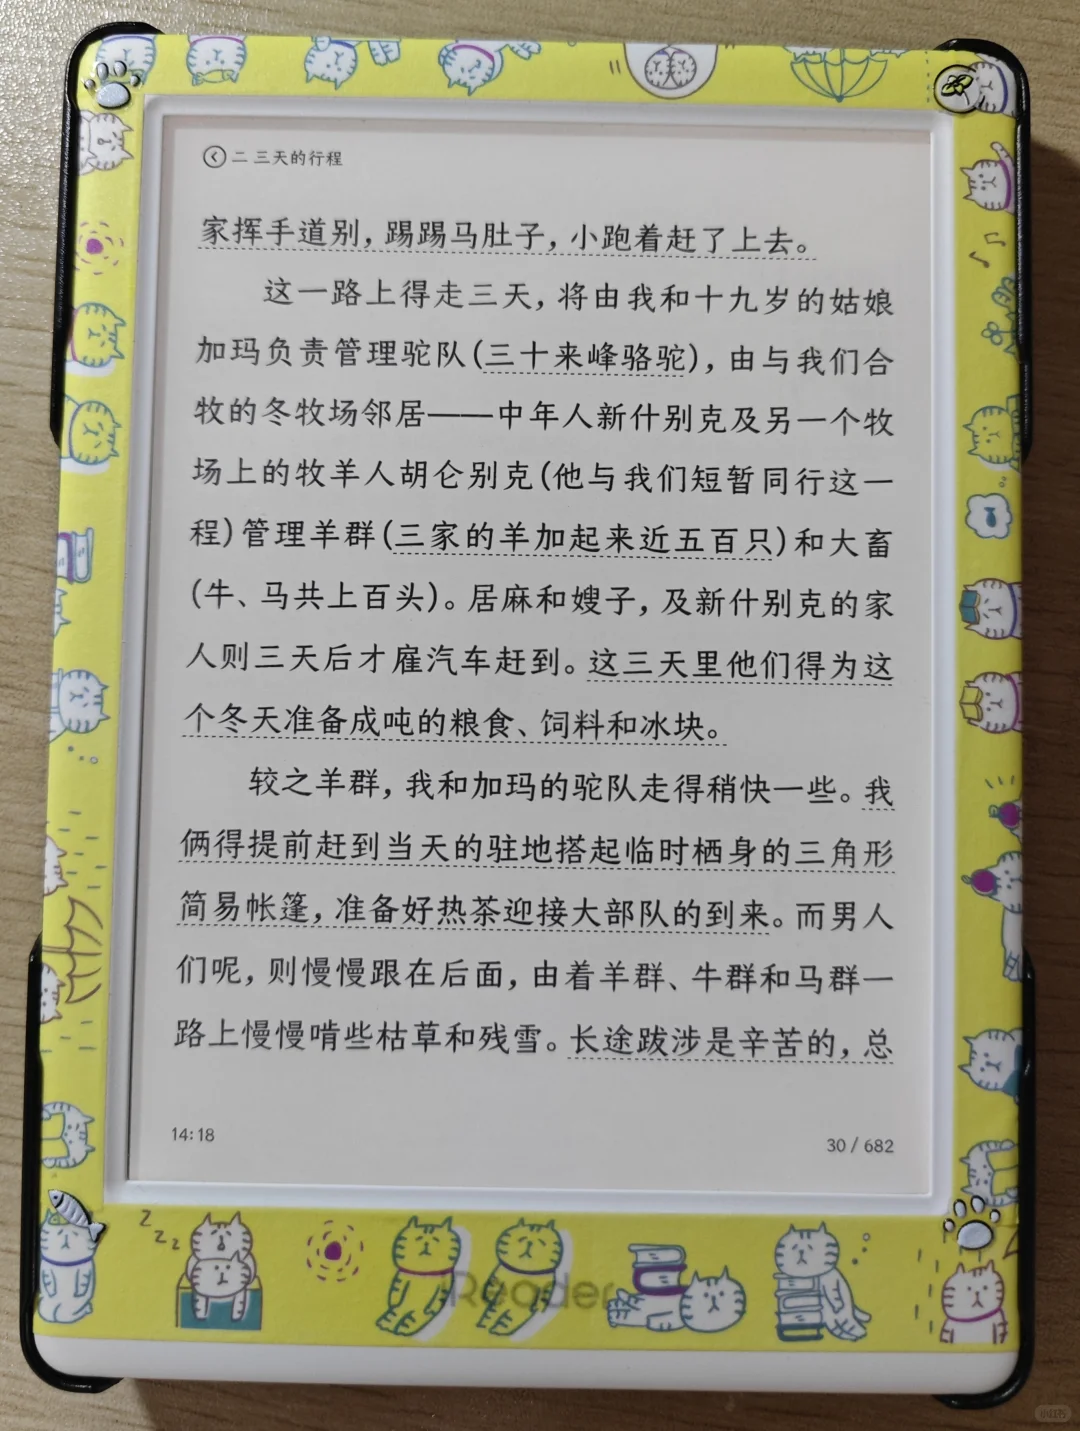 二 三天的行程
家挥手道别，踢踢马肚子，小跑着赶了上去。
这一路上得走三天，将由我和十九岁的姑娘
加玛负责管理驼队(三十来峰骆驼)，由与我们合
牧的冬牧场邻居——中年人新什别克及另一个牧
场上的牧羊人胡仑别克(他与我们短暂同行这一
程)管理羊群(三家的羊加起来近五百只)和大畜
(牛、马共上百头)。居麻和嫂子，及新什别克的家
人则三天后才雇汽车赶到。这三天里他们得为这
个冬天准备成吨的粮食、饲料和冰块。
较之羊群，我和加玛的驼队走得稍快一些。我
俩得提前赶到当天的驻地搭起临时栖身的三角形
简易帐篷，准备好热茶迎接大部队的到来。而男人
们呢，则慢慢跟在后面，由着羊群、牛群和马群一
路上慢慢啃些枯草和残雪。长途跋涉是辛苦的，总
14:18
30 / 682
z z z
iReader
小红书